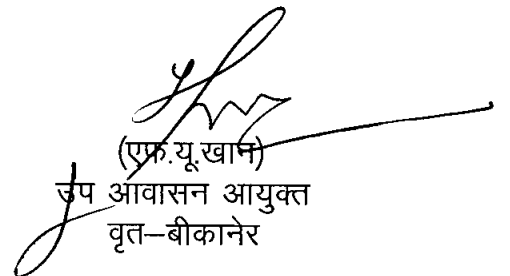 (एफ.यू.खान)
उप आवासन आयुक्त
वृत–बीकानेर